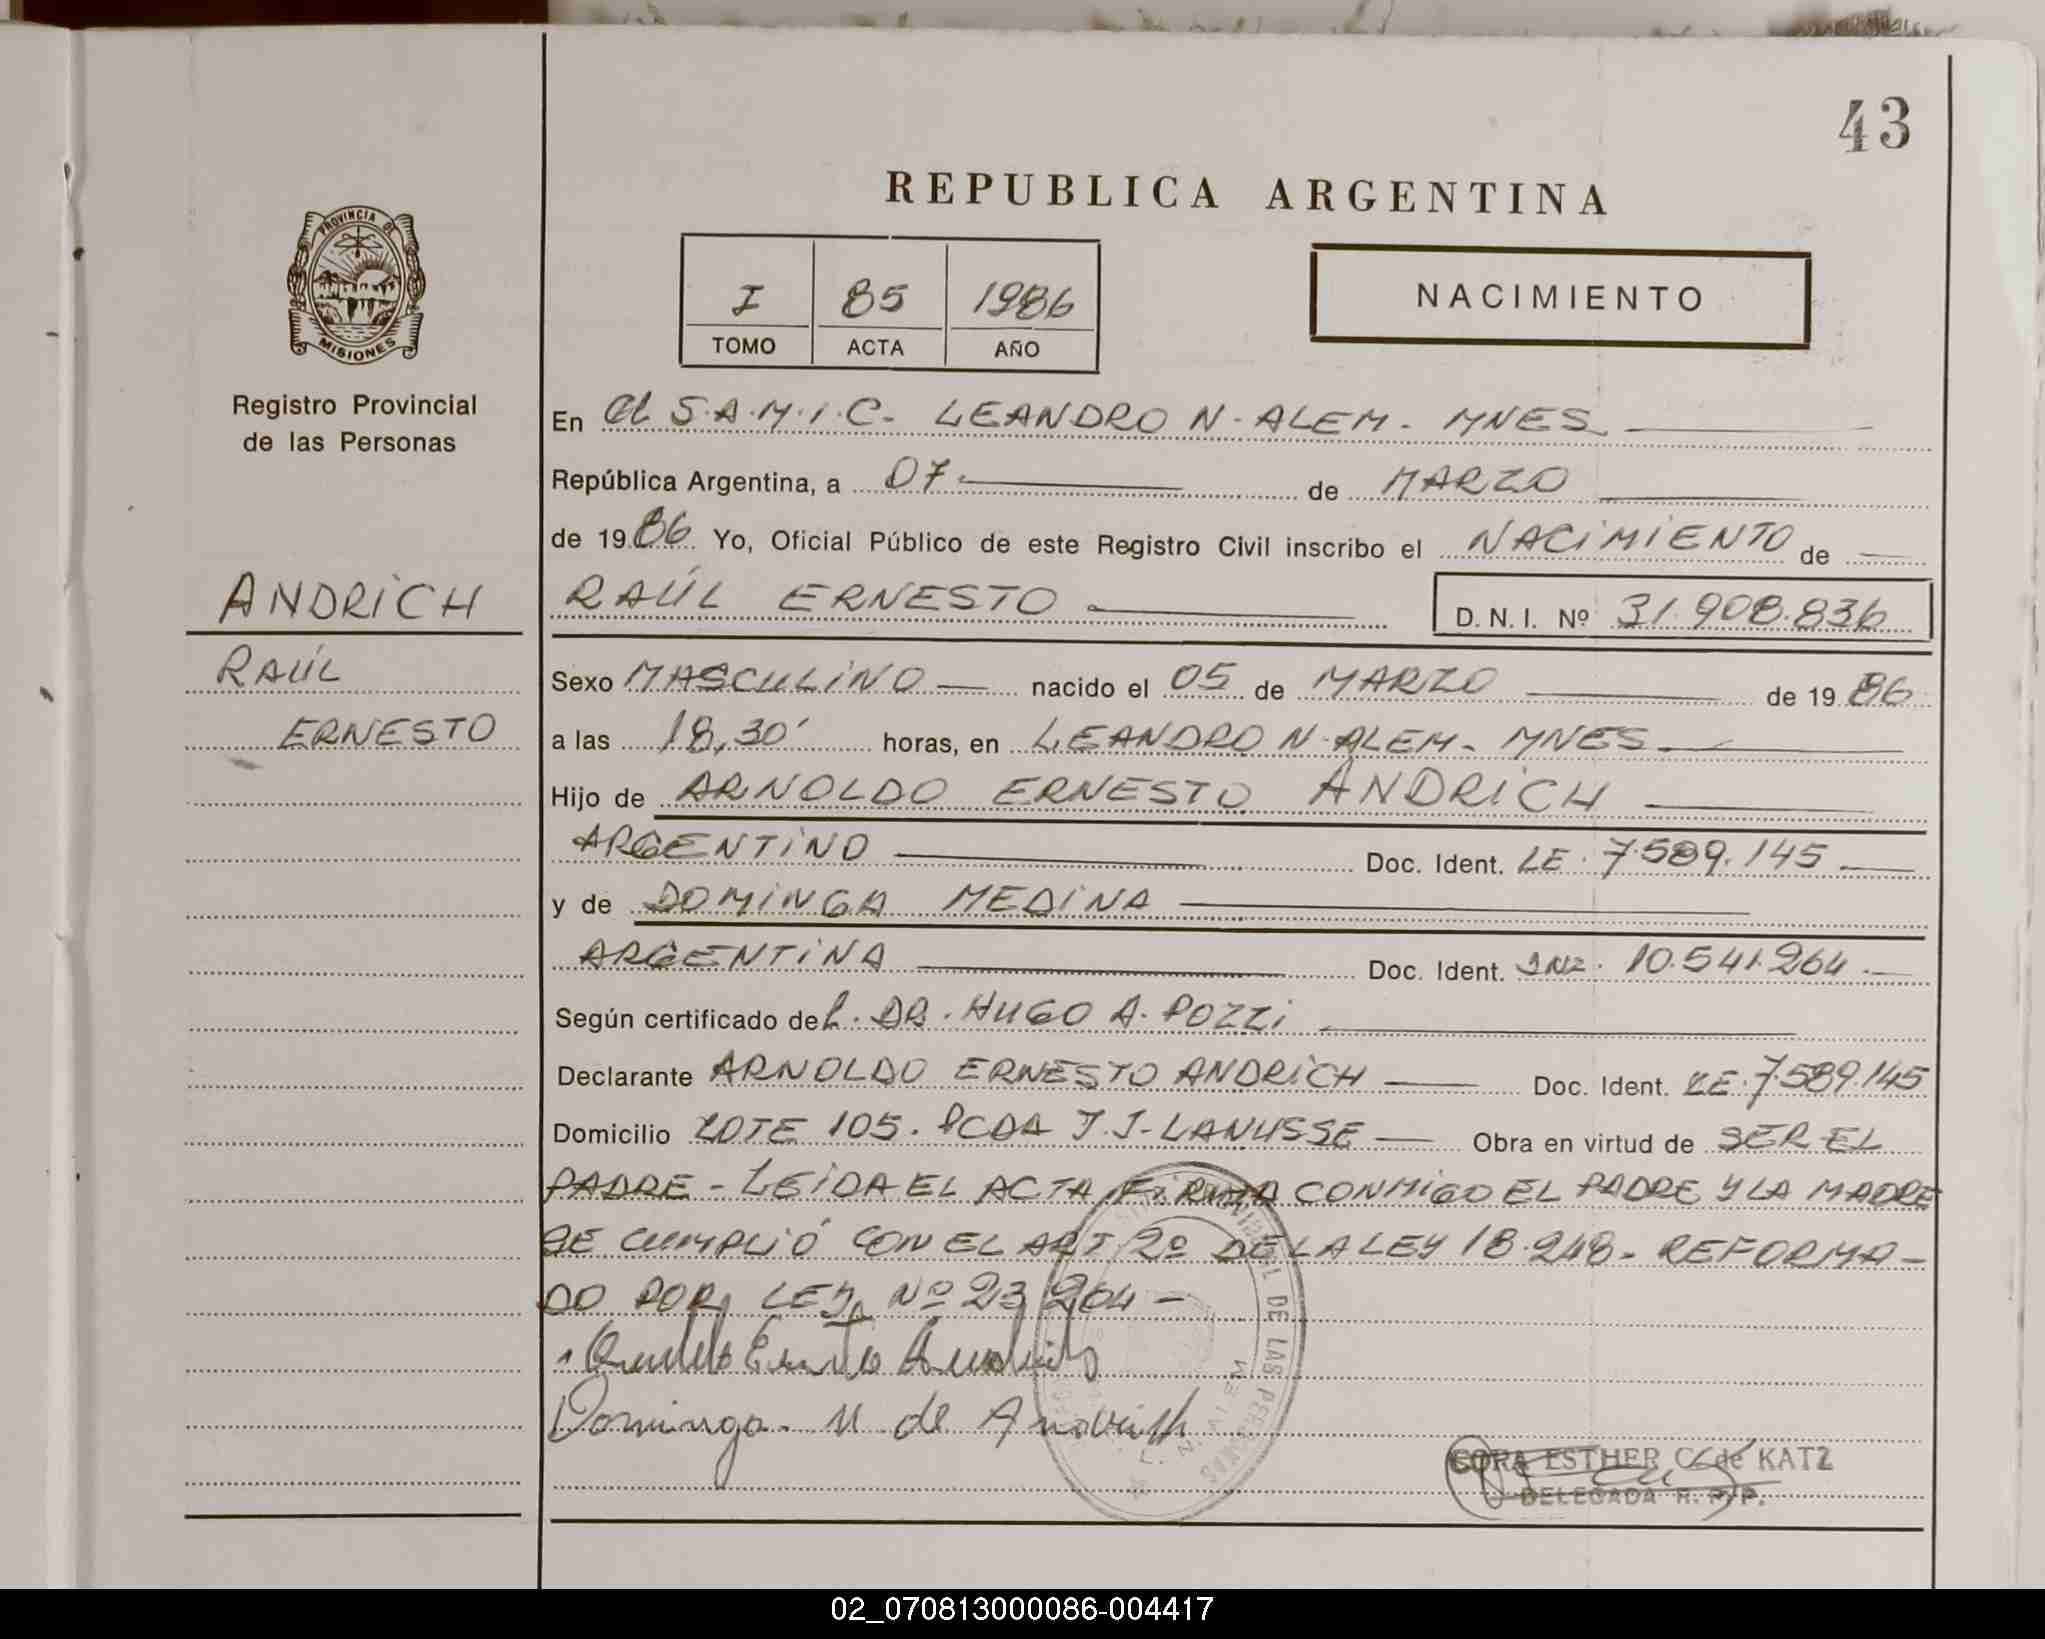 43
REPUBLICA ARGENTINA
PROVINCIA DE
MISIONES
Registro Provincial
de las Personas
I 85 1986
TOMO ACTA AÑO
NACIMIENTO
En el S.A.M.I.C. LEANDRO N. ALEM. MNES
República Argentina, a 07 de MARZO
de 1986 Yo, Oficial Público de este Registro Civil inscribo el NACIMIENTO de
RAÚL ERNESTO D.N.I. Nº 31.908.836
ANDRICH
RAÚL
ERNESTO
Sexo MASCULINO nacido el 05 de MARZO de 1986
a las 18,30' horas, en LEANDRO N. ALEM. MNES.
Hijo de ARNOLDO ERNESTO ANDRICH
ARGENTINO Doc. Ident. LE. 7.589.145
y de DOMINGA MEDINA
ARGENTINA Doc. Ident. 10.541.264
Según certificado del. DR. HUGO A. POZZI
Declarante ARNOLDO ERNESTO ANDRICH Doc. Ident. LE. 7.589.145
Domicilio LOTE 105. PCDA J.J. LANUSSE Obra en virtud de SER EL
PADRE - LEIDA EL ACTA FIRMA CONMIGO EL PADRE Y LA MADRE
SE CUMPLIÓ CON EL ART 2º DE LA LEY 18.248 - REFORMA-
DO POR LEY Nº 23.264 -
Ernesto Andrich
Dominga M de Andrich
DE LAS PERSONAS
L. N. ALEM
CORA ESTHER C. de KATZ
DELEGADA R. P. P.
02_070813000086-004417